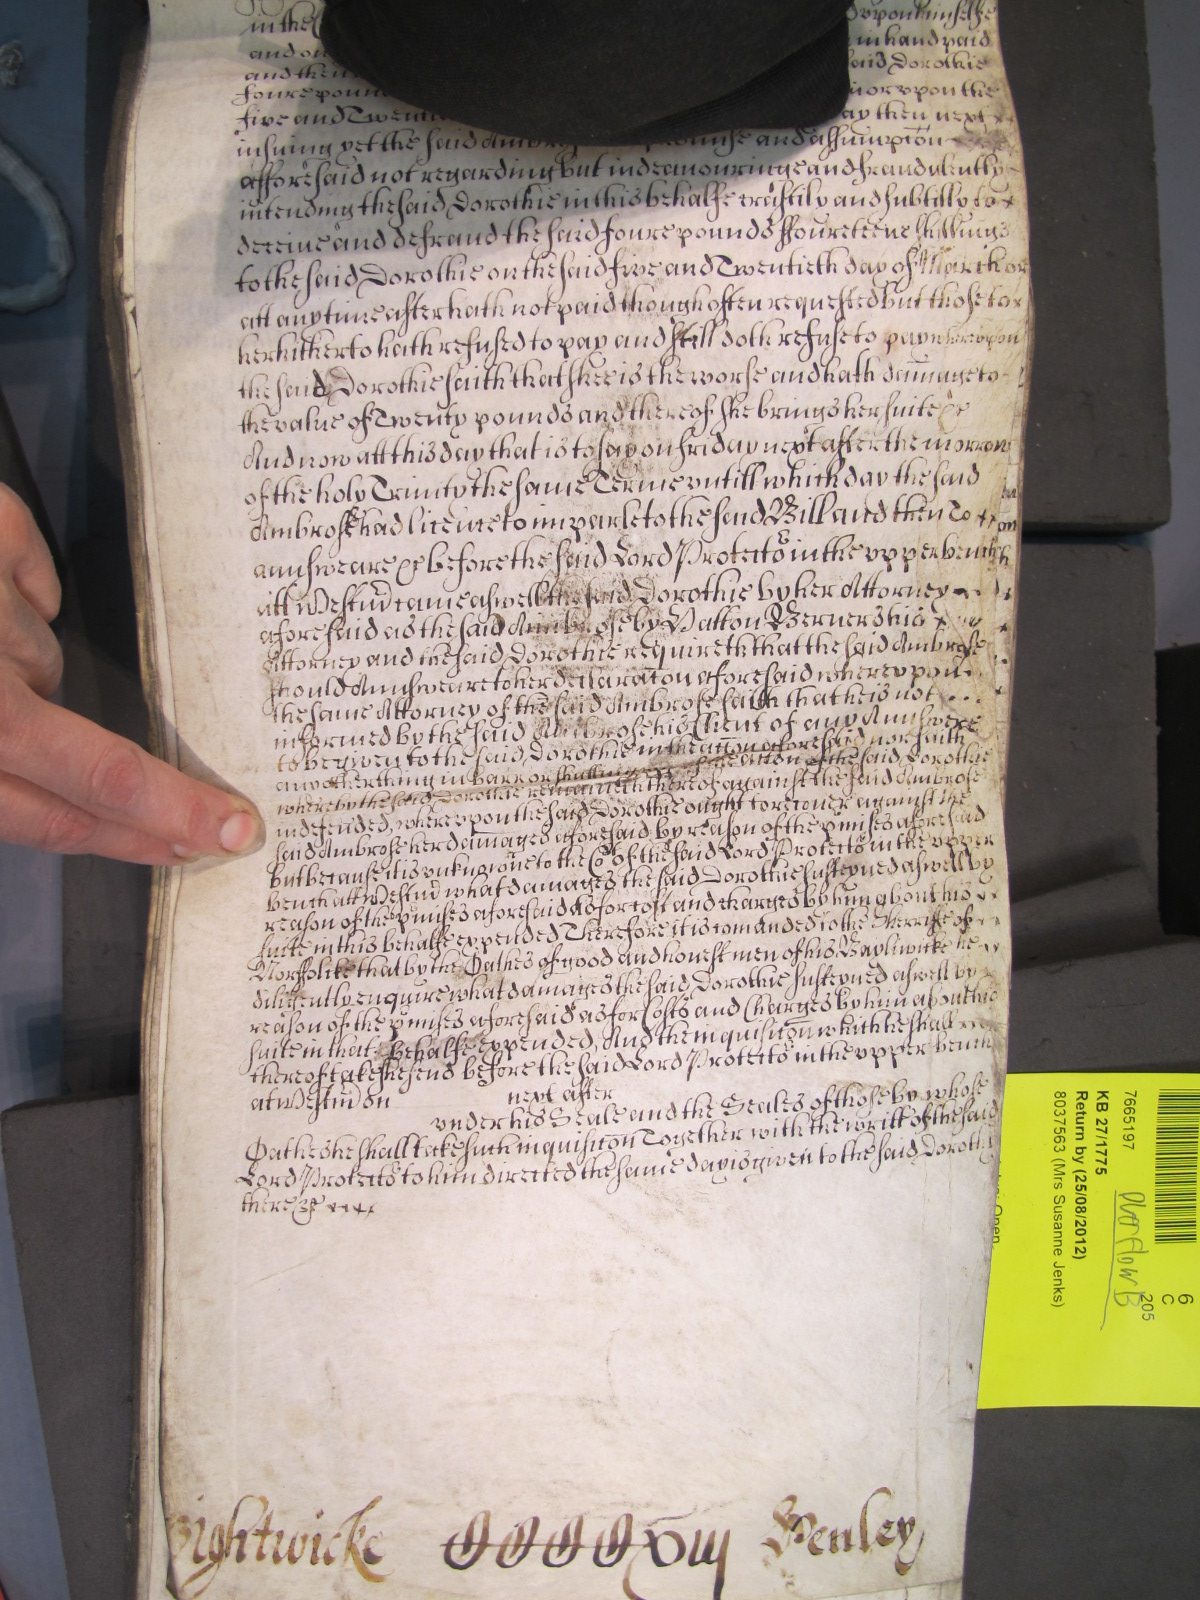 in the
upon himselfe
and
in hand paid
and then
said Dorothie
foure pound
upon the
five and Twenti
ay then next
insuing yet the said promise and assumption
afforesaid not regarding but indeavouringe and fraudulently
intending the said Dorothie in this behalfe craftily and subtilly to
deceive and defraud the said foure pounds ffoureteene shillings
to the said Dorothie on the said five and Twentieth day of March or
att any time after hath not paid though often requested but those to
her hitherto hath refused to pay and still doth refuse to pay whereupon
the said Dorothie saith that shee is the worse and hath damage to
the value of Twenty pounds and thereof she brings her suite &c
And now att this day that is to say on friday next after the morrow
of the holy Trinity the same Terme untill which day the said
Ambrose had licence to imparle to the said Bill and then to
annsweare &c before the said Lord Protector in the upper bench
att Westm̄ came aswell the said Dorothie by her Attorney
aforesaid as the said Ambrose by Berners his
Attorney and the said Dorothie requireth that the said Ambrose
should Annsweare to her declaracōn aforesaid whereupon
the same Attorney of the said Ambrose saith that he is not
informed by the said Ambrose his Client of any Annswere
to be given to the said Dorothie in the accōn aforesaid nor saith
any other thing in barr or of the said Dorothie
whereby the said Dorothie remaineth thereof against the said Ambrose
indefended, whereupon the said Dorothie ought to recover against the
said Ambrose her damages aforesaid by reason of the p̄mises aforesaid
but because it is unknowne to the Co:t of the said Lord Protector in the upper
bench att Westm̄ what damages the said Dorothie susteyned aswell by
reason of the p̄mises aforesaid as for cost and charges by him about his
suite in this behalfe expended Therefore it is comanded to the Sherriffe of
Norffolke that by the Oathes of good and honest men of his Bayliwicke he
diligently enquire what damages the said Dorothie susteyned aswell by
reason of the p̄mises aforesaid as for Costs and Charges by him about his
suite in that behalfe expended, And the inquisicōn which he shall
thereof take he send before the said Lord Protector in the upper bench
at Westm̄ on next after
under his Seale and the Seales of those by whose
Oathes he shall take such inquisicōn Together with the writt of the said
Lord Protector to him directed the same day is given to the said Dorothy
there &c
Wightwicke CCCCxiiij Henley
7665197
KB 27/1775
Return by (25/08/2012)
8037563 (Mrs Susanne Jenks)
Overflow B
6
C
205
Open